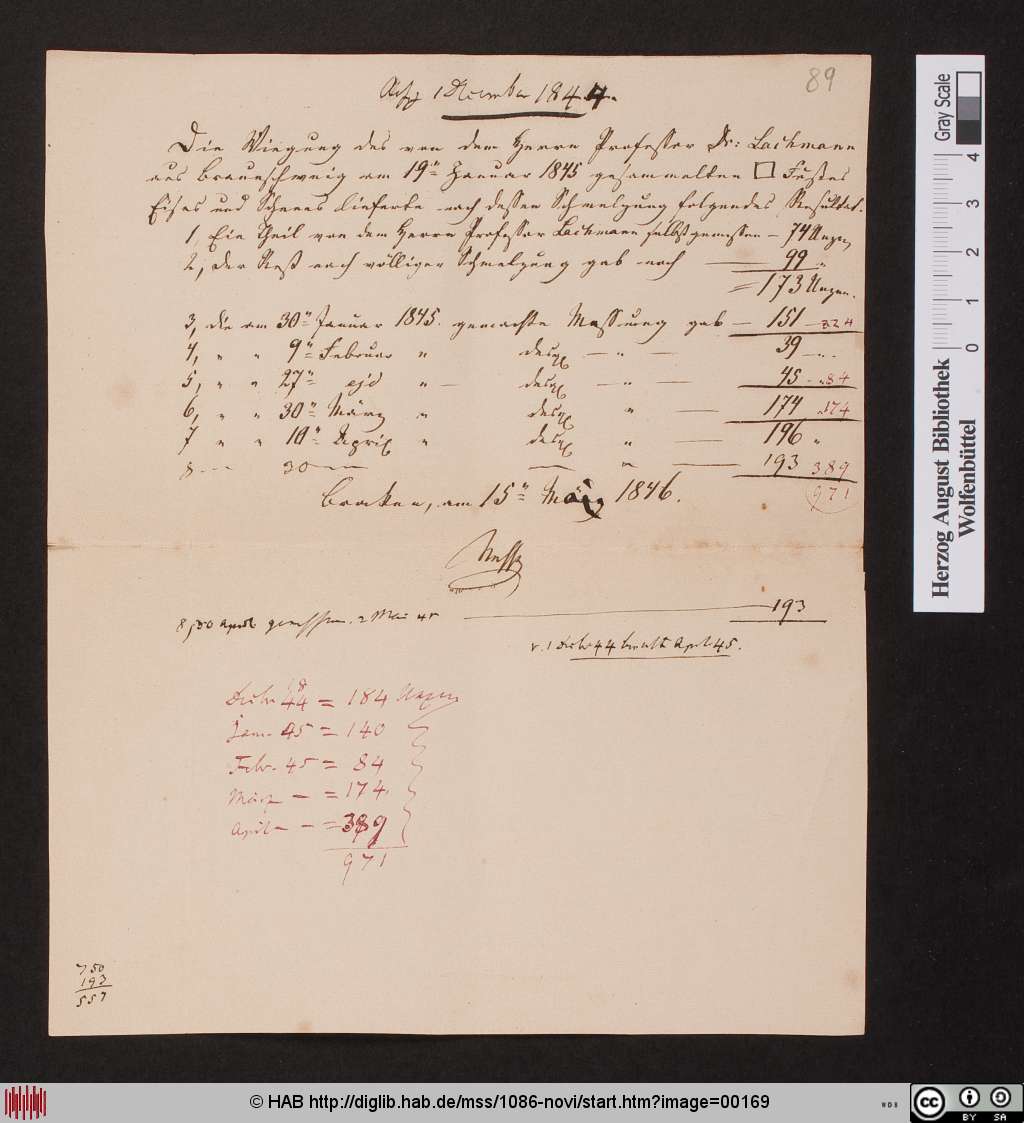 89
1 December 1844.
Die Wiegung des von dem Herrn Professor Dr: Lachmann
aus Braunschweig am 19n Januar 1845 gesammelten □ Fußes
Eises und Schnees lieferte nach dessen Schmelzung folgendes Resultat.
1, Ein Theil von dem Herrn Professor Lachmann selbst gemessen – 74 Unzen
2, der Rest nach völliger Schmelzung gab noch — 99 "
= 173 Unzen.
3, die am 30n Januar 1845. gemachte Messung gab — 151 — 324
4, " " 9n Februar " desgl — " — 39 — " -
5, " " 27n ejd " — desgl — " — 45 — 84
6, " " 30n März " desgl " — 174 174
7 " " 10n April " desgl " — 196 "
8 — 30 — — " — 193 389
971
Braken, am 15n März 1846.
8, 30 April gemessen. 2 Mai 45 — 193
v. 1 Decbr 44 bis ult April 45.
Decbr 44 = 184 Unzen
Jan. 45 = 140
Febr. 45 = 84
März — = 174
April — — = 389
971
750
193
557
Gray Scale
0 1 2 3 4
Herzog August Bibliothek
Wolfenbüttel
© HAB http://diglib.hab.de/mss/1086-novi/start.htm?image=00169
WDB
cc BY SA